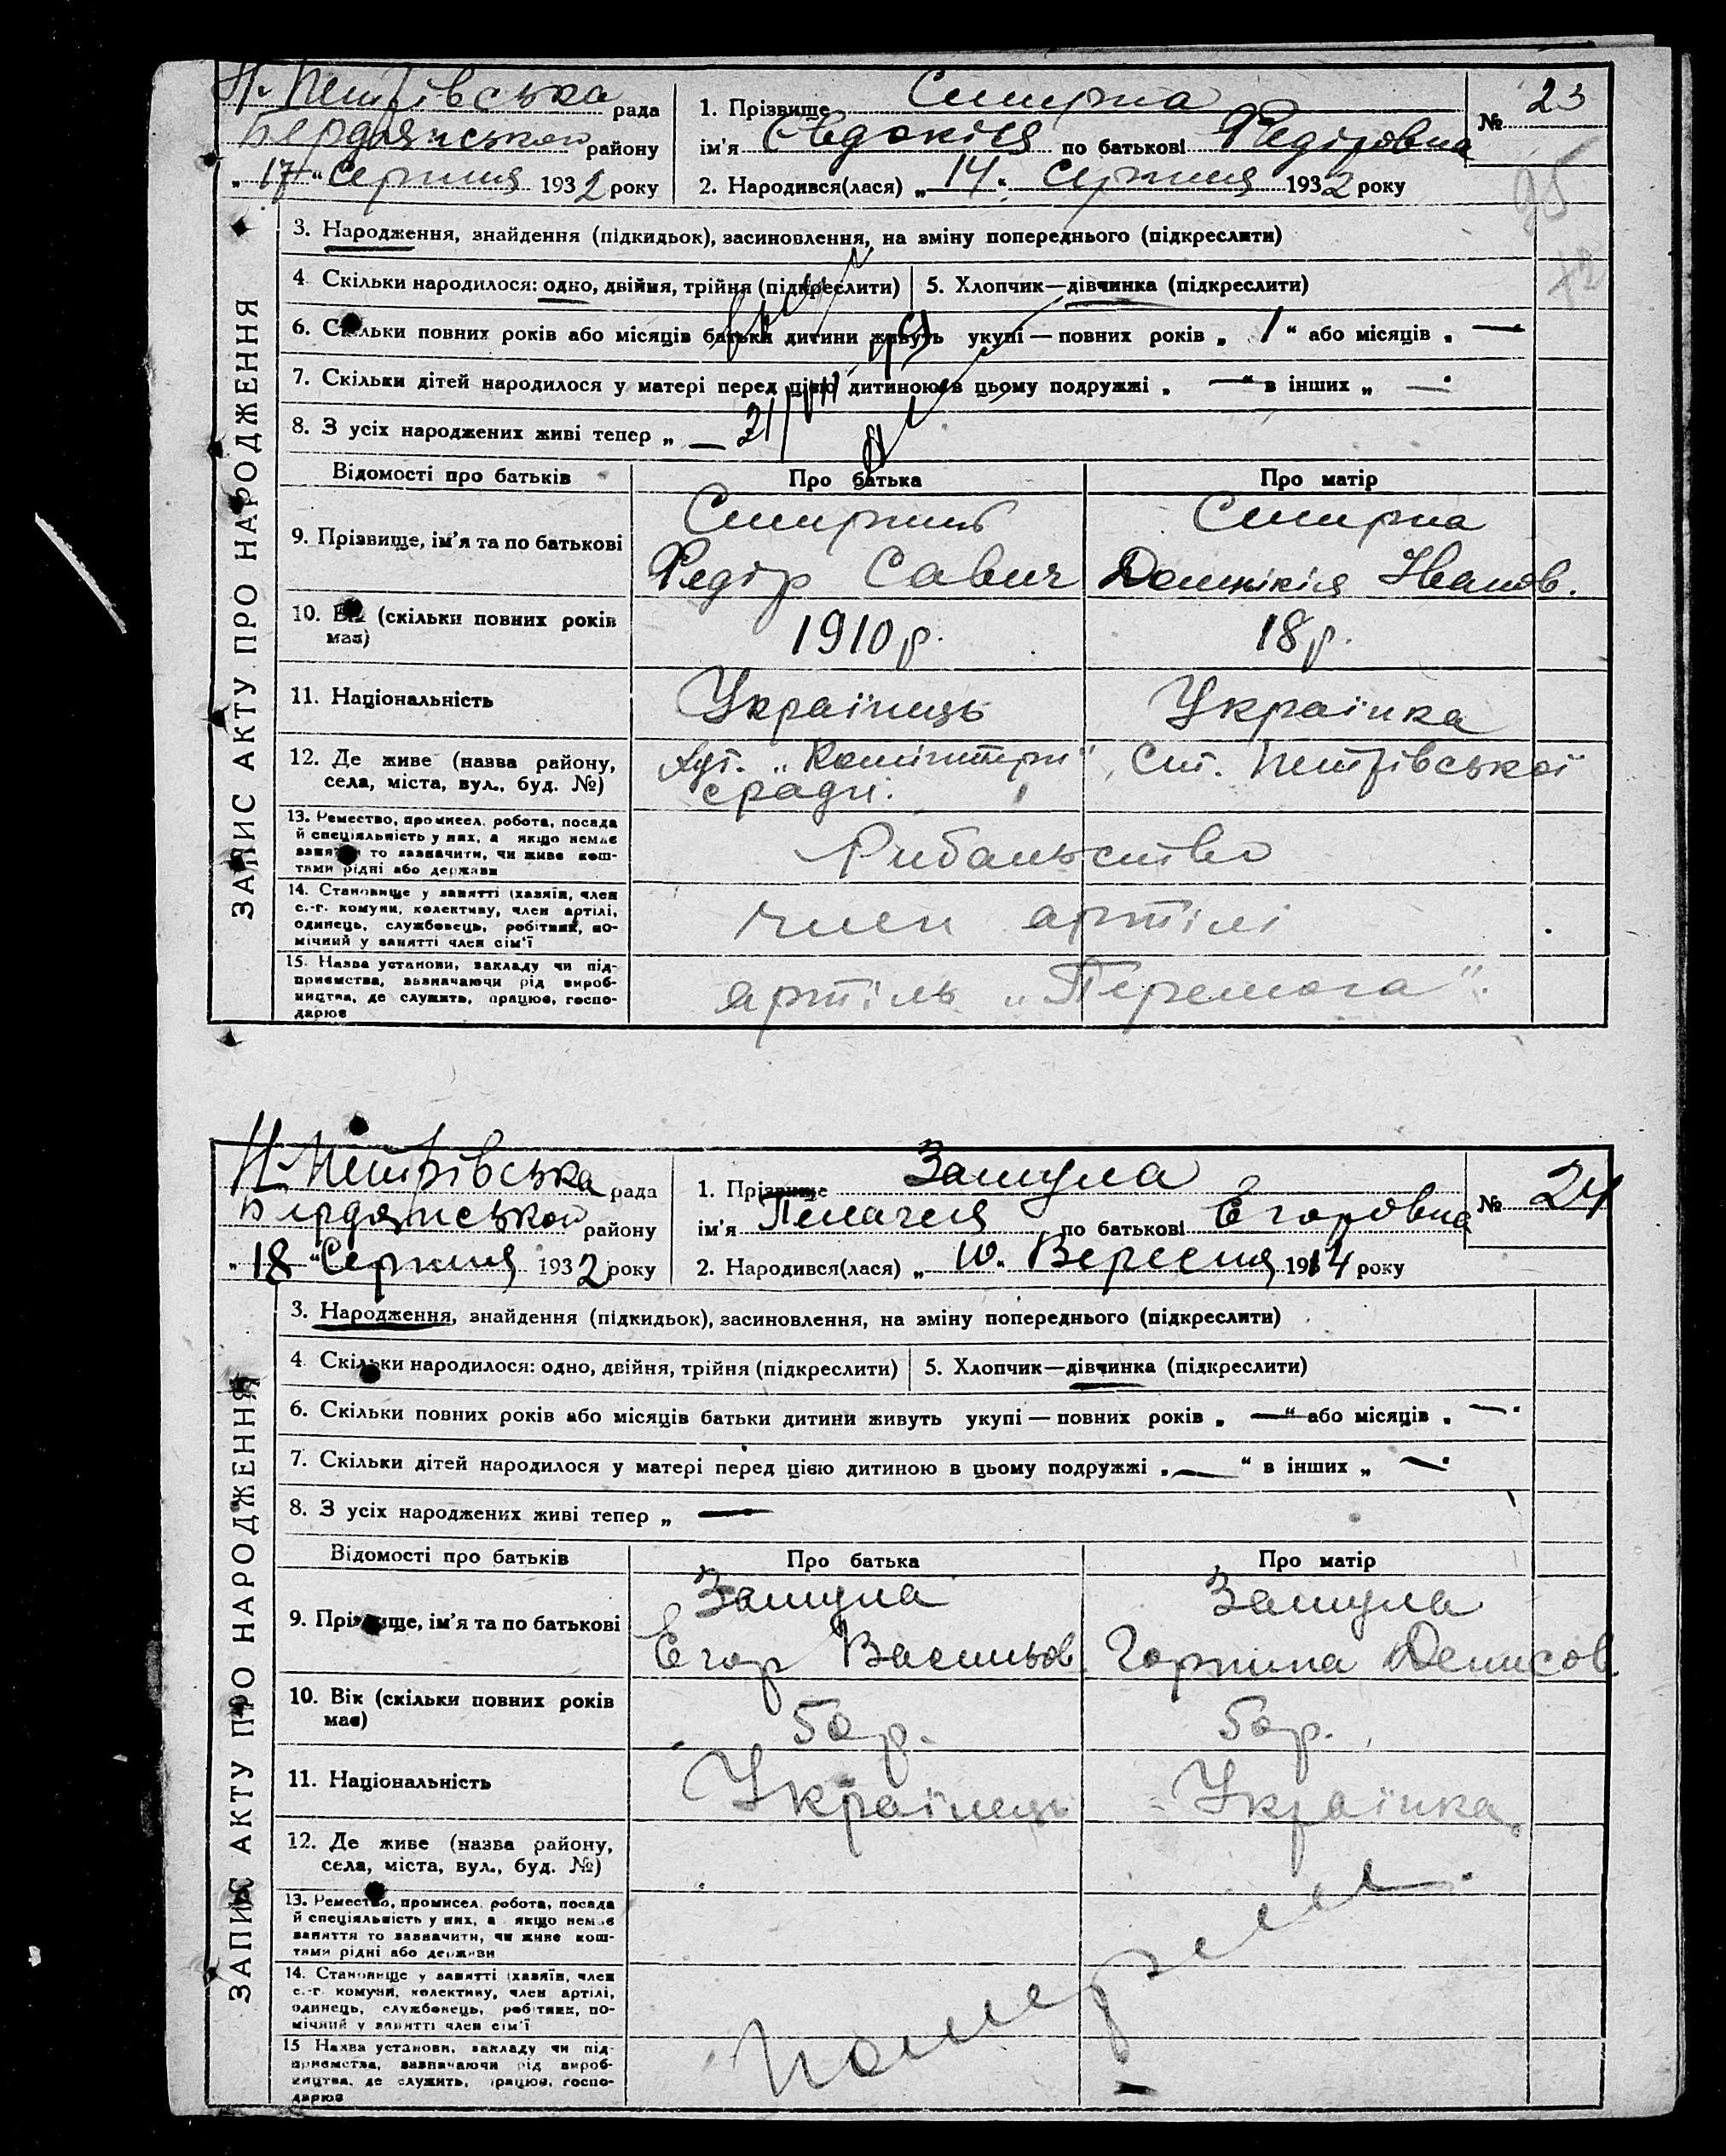 Н-Петрівська рада
Бердянськой району
„17“ Серпня 1932 року
1. Прізвище Смирна
ім'я Євдокія по батькові Федіровна
2. Народився(лася) „14“ Серпня 1932 року
№ 23
95
72
ЗАПИС АКТУ ПРО НАРОДЖЕННЯ
3. Народження, знайдення (підкидьок), засиновлення, на зміну попереднього (підкреслити)
4. Скільки народилося: одно, двійня, трійня (підкреслити) 5. Хлопчик—дівчинка (підкреслити)
6. Скільки повних років або місяців батьки дитини живуть укупі — повних років „ 1 “ або місяців „ —
7. Скільки дітей народилося у матері перед цією дитиною в цьому подружжі „ — “ в інших „ —
8. З усіх народжених живі тепер „ —
Відомості про батьків Про батька Про матір
9. Прізвище, ім'я та по батькові
Смирний Смирна
Федір Савич Домнікія Іванов.
10. Вік (скільки повних років має) 1910 р. 18 р.
11. Національність Українець Українка
12. Де живе (назва району, села, міста, вул., буд. №)
хут. „Комінтерн“, Ст. Петрівської
сради.
13. Ремество, промисел, робота, посада й спеціяльність у них, а якщо немає заняття то зазначити, чи живе коштами рідні або держави
Рибальство
14. Становище у занятті (хазяїн, член с.-г. комуни, колективу, член артілі, одинець, службовець, робітник, помічний у занятті член сім'ї
член артілі
15. Назва установи, закладу чи підприємства, зазначаючи рід виробництва, де служить, працює, господарює
артіль „Перемога“.
Н-Петрівська рада
Бердянськой району
„18“ Серпня 1932 року
1. Прізвище Замула
ім'я Пелагея по батькові Єгоровна
2. Народився(лася) „10“ Вересня 1914 року
№ 24
ЗАПИС АКТУ ПРО НАРОДЖЕННЯ
3. Народження, знайдення (підкидьок), засиновлення, на зміну попереднього (підкреслити)
4. Скільки народилося: одно, двійня, трійня (підкреслити) 5. Хлопчик—дівчинка (підкреслити)
6. Скільки повних років або місяців батьки дитини живуть укупі — повних років „ — “ або місяців „ —
7. Скільки дітей народилося у матері перед цією дитиною в цьому подружжі „ — “ в інших „ —
8. З усіх народжених живі тепер „ —
Відомості про батьків Про батька Про матір
9. Прізвище, ім'я та по батькові
Замула Замула
Єгор Васильов. Горпина Денисов
10. Вік (скільки повних років має) 50 р. 50 р.
11. Національність Українець Українка
12. Де живе (назва району, села, міста, вул., буд. №)
13. Ремество, промисел, робота, посада й спеціяльність у них, а якщо немає заняття то зазначити, чи живе коштами рідні або держави
14. Становище у занятті (хазяїн, член с.-г. комуни, колективу, член артілі, одинець, службовець, робітник, помічний у занятті член сім'ї
15. Назва установи, закладу чи підприємства, зазначаючи рід виробництва, де служить, працює, господарює
померли